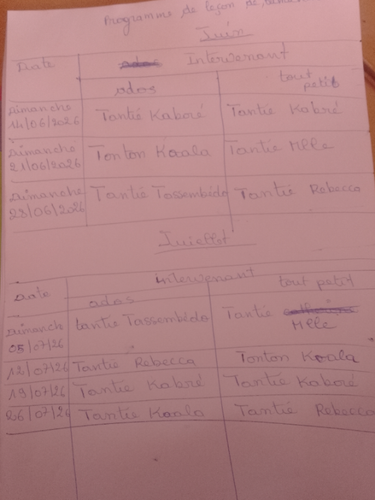 Programme de leçon de
Juin
Date Intervenant
ados tout petit
Dimanche 14/06/2026 Tantié Kaboré Tantié Kabré
Dimanche 21/06/2026 Tonton Koala Tantie Mlle
Dimanche 28/06/2026 Tantié Tassembédo Tantié Rebecca
Juiellet
Date intervenant
ados tout petit
Dimanch 05/07/26 tantie Tassembedo Tantie Mlle
12/07/26 Tantié Rebecca Tonton Koala
19/07/26 Tantié Kabré Tantié Kaboré
26/07/26 Tantié Koala Tantié Rebecca